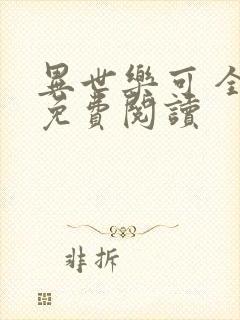 異世樂可全
免費閱讀
非拆